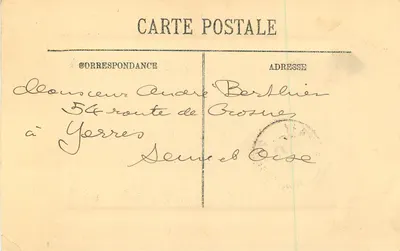 CARTE POSTALE
CORRESPONDANCE
ADRESSE
Monsieur André Berthier
54 route de Crosnes
à Yerres
Seine et Oise